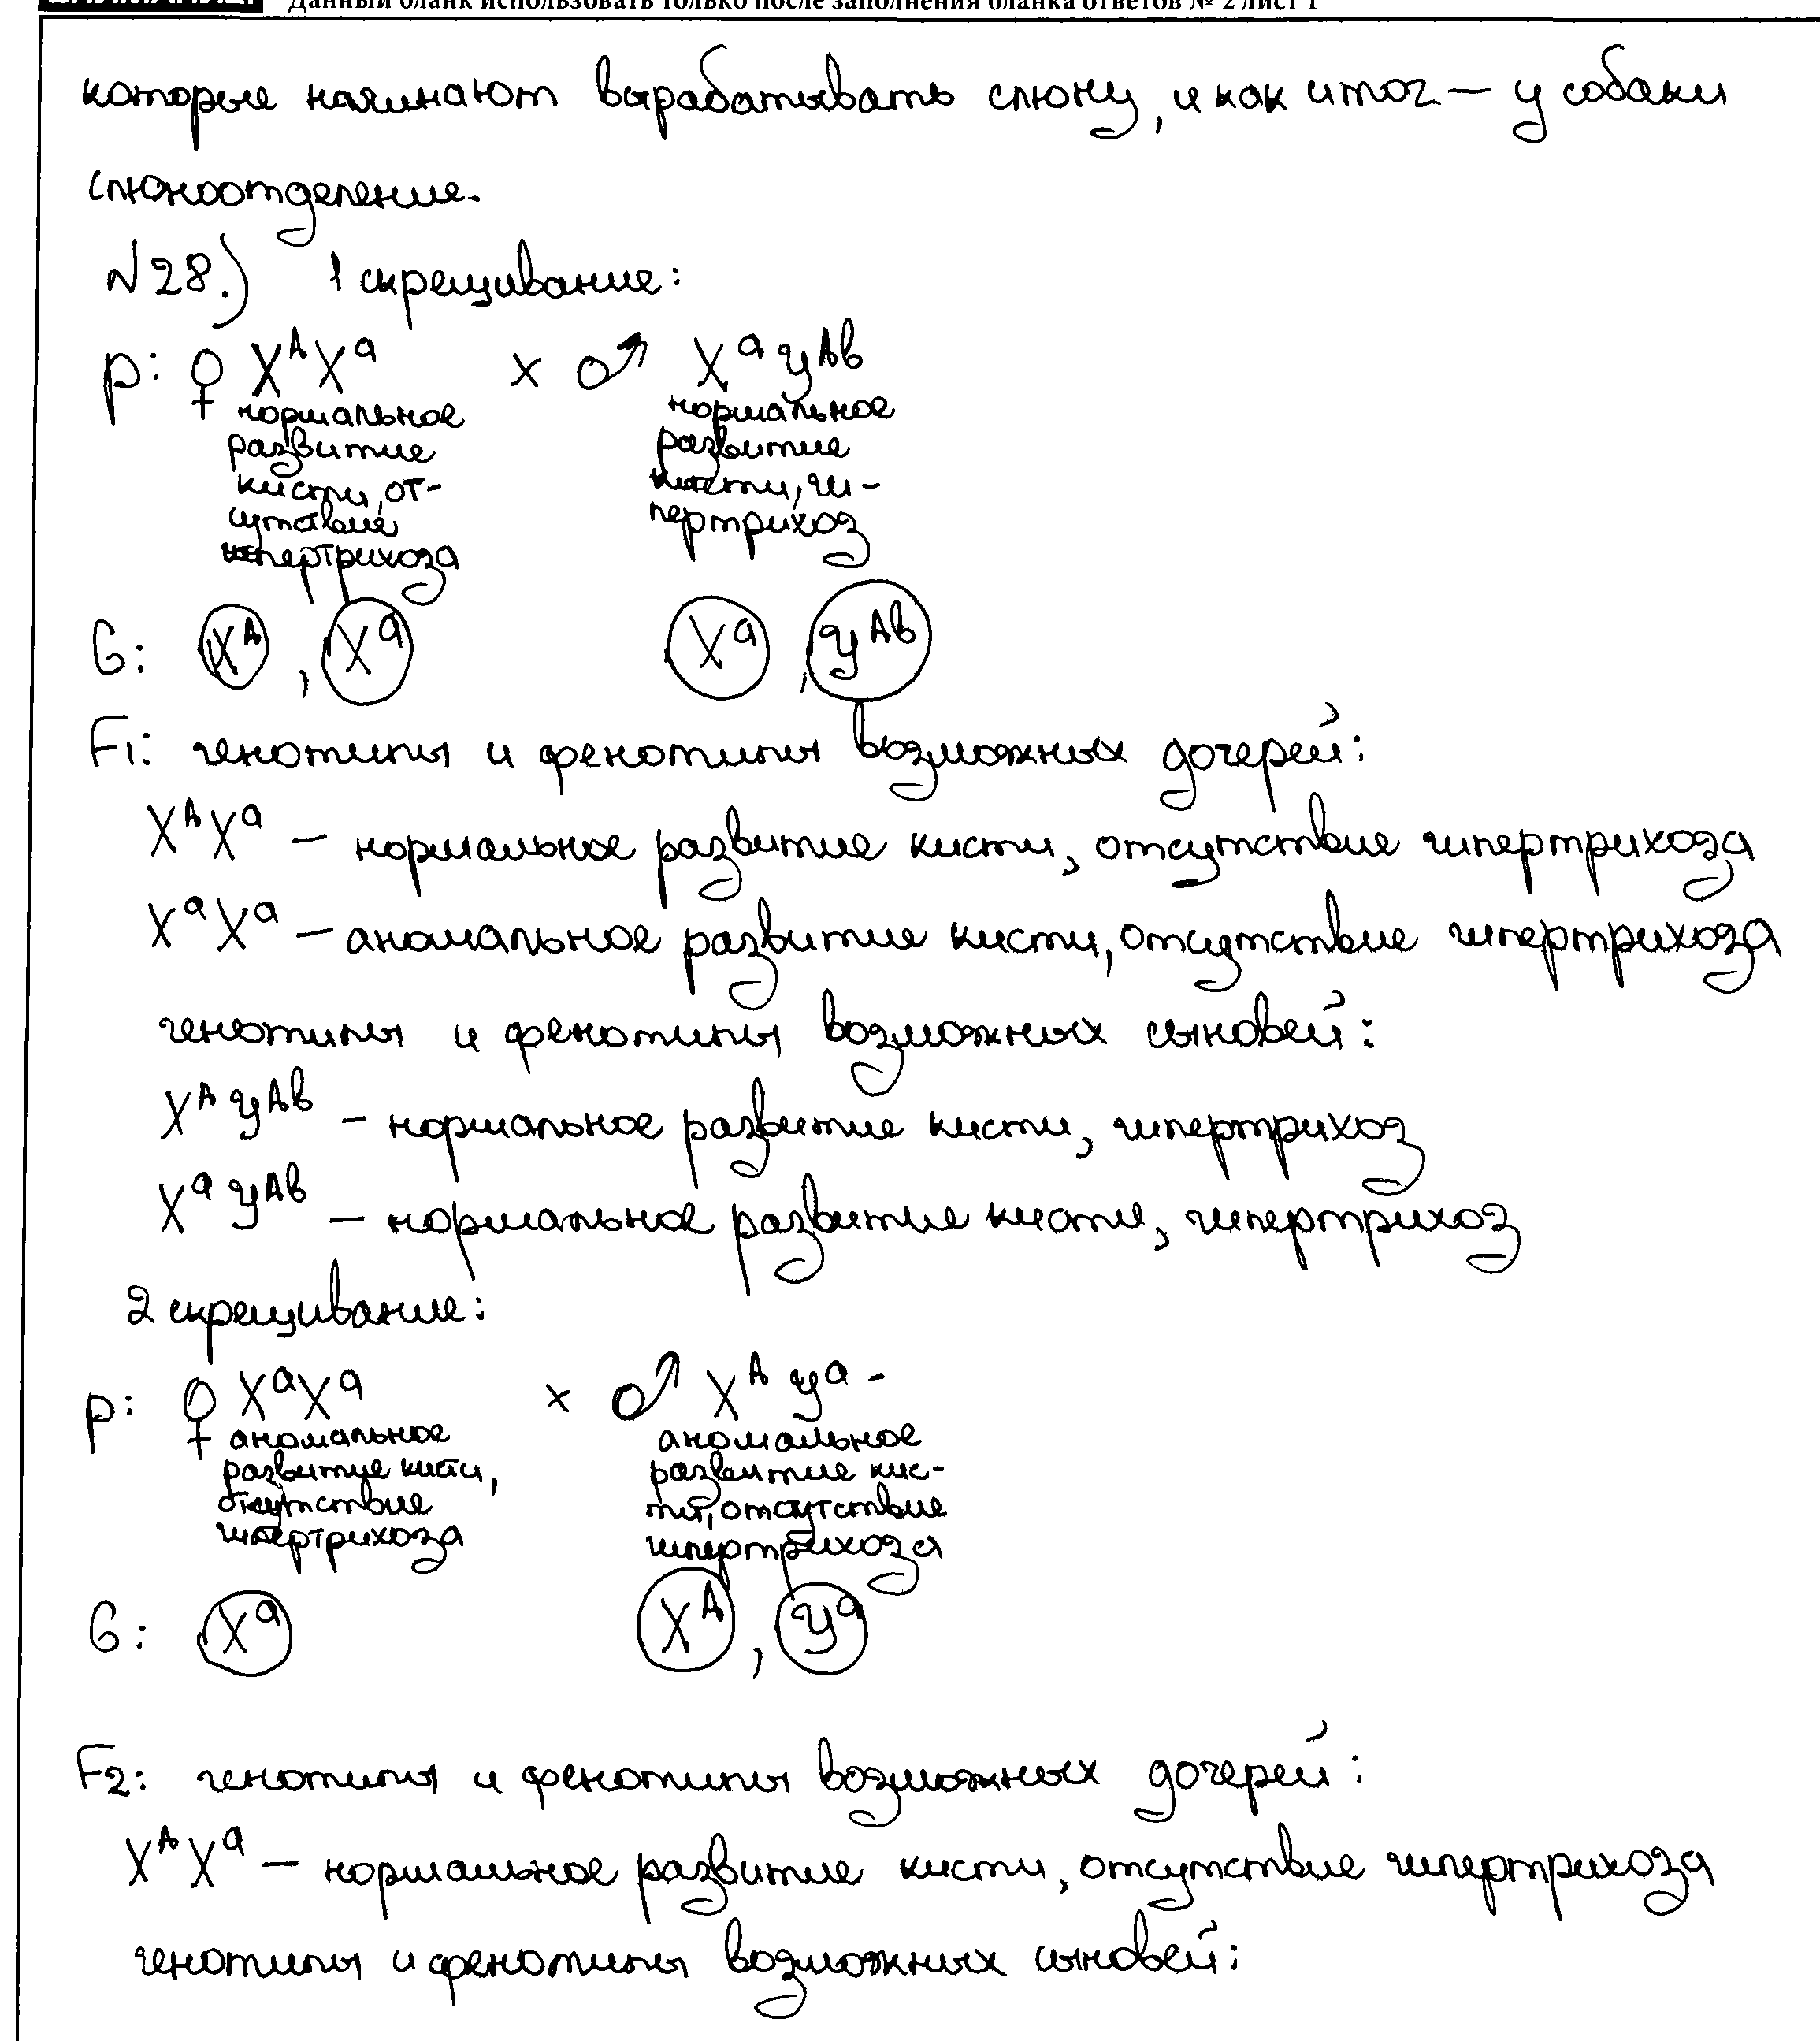 Данный бланк использовать только после заполнения бланка ответов № 2 лист 1
которые начинают вырабатывать слюну, и как итог — у собаки
слюноотделение.
№28.) 1 скрещивание:
P: ♀ XᴬXᵃ × ♂ XᵃYᴬᵇ
нормальное развитие кисти, отсутствие гипертрихоза
нормальное развитие кисти, гипертрихоз
G: Xᴬ, Xᵃ Xᵃ, Yᴬᵇ
F1: генотипы и фенотипы возможных дочерей:
XᴬXᵃ — нормальное развитие кисти, отсутствие гипертрихоза
XᵃXᵃ — аномальное развитие кисти, отсутствие гипертрихоза
генотипы и фенотипы возможных сыновей:
XᴬYᴬᵇ — нормальное развитие кисти, гипертрихоз
XᵃYᴬᵇ — нормальное развитие кисти, гипертрихоз
2 скрещивание:
P: ♀ XᵃXᵃ × ♂ XᴬYᵃ -
аномальное развитие кисти, отсутствие гипертрихоза
аномальное развитие кисти, отсутствие гипертрихоза
G: Xᵃ Xᴬ, Yᵃ
F2: генотипы и фенотипы возможных дочерей:
XᴬXᵃ — нормальное развитие кисти, отсутствие гипертрихоза
генотипы и фенотипы возможных сыновей: